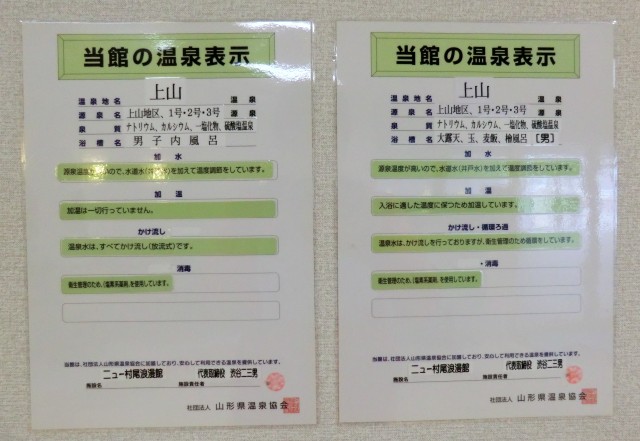 当館の温泉表示
温泉地名 上山 温泉
源泉名 上山地区、1号・2号・3号 源泉
泉質 ナトリウム、カルシウム、一塩化物、硫酸塩温泉
浴槽名 男子内風呂
加水
源泉温度が高いので、水道水(井戸水)を加えて温度調節をしています。
加温
加温は一切行っていません。
かけ流し
温泉水は、すべてかけ流し(放流式)です。
消毒
衛生管理のため、(塩素系薬剤)を使用しています。
当館は、社団法人山形県温泉協会に加盟しており、安心して利用できる温泉を提供しています。
施設名 ニュー村尾浪漫館 施設責任者 代表取締役 渋谷二三男
社団法人 山形県温泉協会
当館の温泉表示
温泉地名 上山 温泉
源泉名 上山地区、1号・2号・3号 源泉
泉質 ナトリウム、カルシウム、一塩化物、硫酸塩温泉
浴槽名 大露天、玉、麦飯、檜風呂 〔男〕
加水
源泉温度が高いので、水道水(井戸水)を加えて温度調節をしています。
加温
入浴に適した温度に保つため加温しています。
かけ流し・循環ろ過
温泉水は、かけ流しを行っておりますが、衛生管理のため循環をしています。
・消毒
衛生管理のため、(塩素系薬剤)を使用しています。
当館は、社団法人山形県温泉協会に加盟しており、安心して利用できる温泉を提供しています。
施設名 ニュー村尾浪漫館 施設責任者 代表取締役 渋谷二三男
社団法人 山形県温泉協会